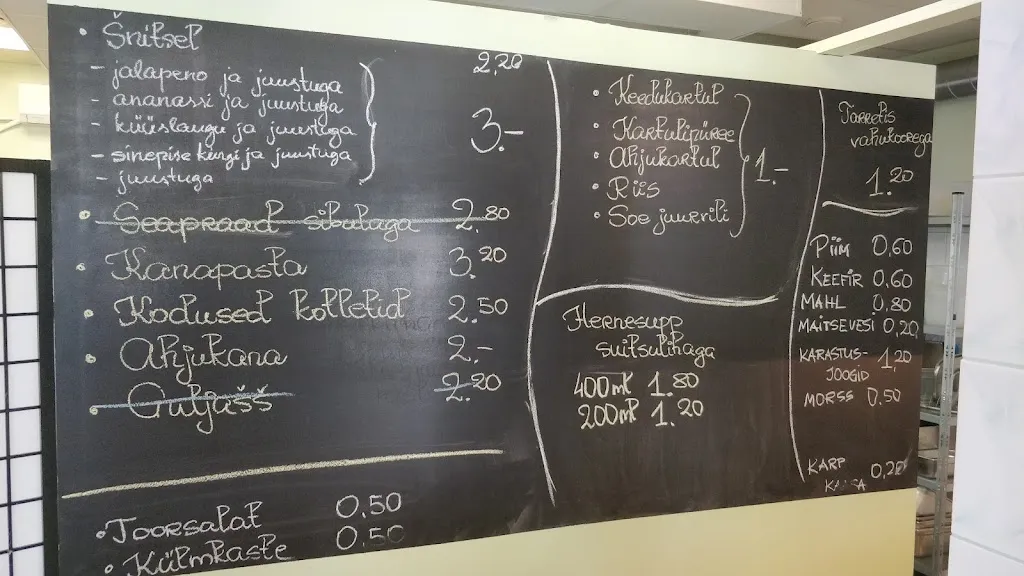 • Šnitsel 2,20
- jalapeno ja juustuga
- ananassi ja juustuga
- küüslaugu ja juustuga 3.-
- sinepise kurgi ja juustuga
- juustuga
• Seapraad sibulaga 2.80
• Kanapasta 3.20
• Kodused kotletid 2.50
• Ahjukana 2.-
• Guljašš 2.20
• Toorsalat 0.50
• Külmkaste 0.50
• Keedukartul
• Kartulipüree
• Ahjukartul 1.-
• Riis
• Soe juurvili
Hernesupp
suitsulihaga
400ml 1.80
200ml 1.20
Tarretis
vahukoorega
1.20
PIIM 0,60
KEEFIR 0,60
MAHL 0,80
MAITSEVESI 0,20
KARASTUS- 1,20
JOOGID
MORSS 0,50
KARP 0,20
KAASA